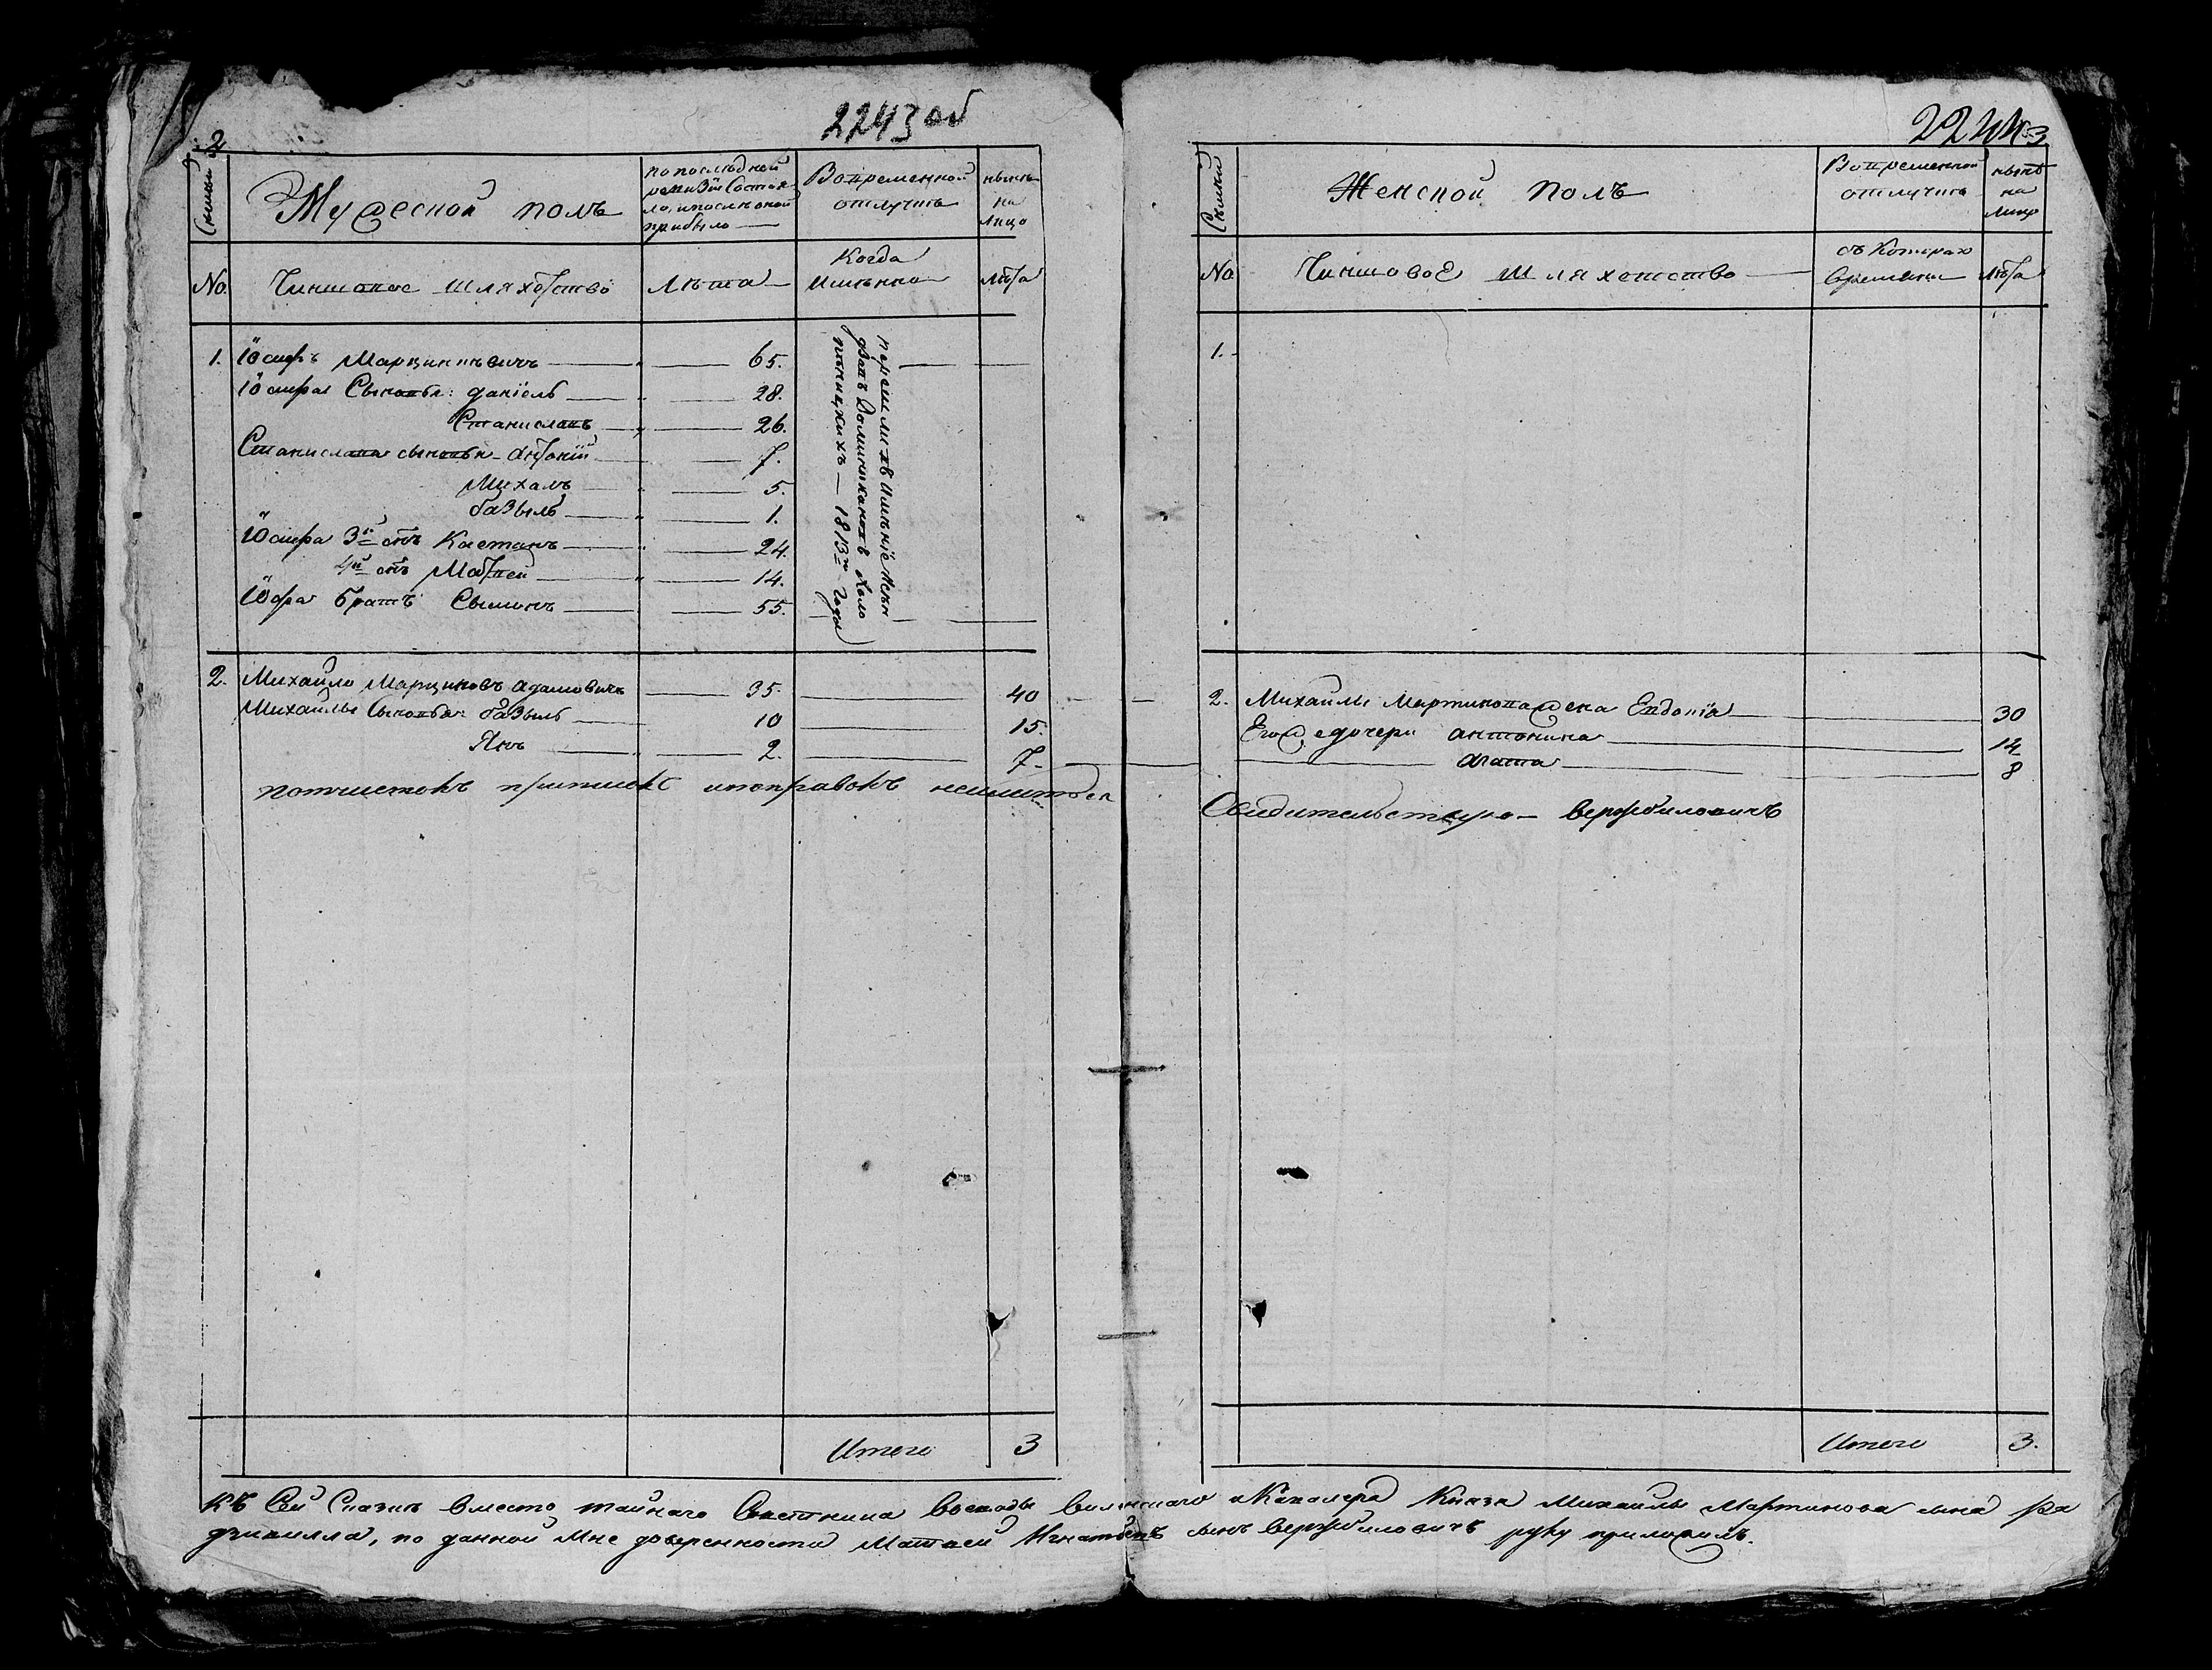 2243 об
2
Семьи
Мужеской полъ
по последней
ревизіи состоя
ло, и после оной
прибыло
Во временной
отлучке
ныне
на
лицо
No.
Чиншовое шляхетство
Лета
Когда
именно
лета
1. Іосифъ Марцинкевичъ 65.
Іосифа Сыновья: Даніель 28.
Станиславъ 26.
Станислава сыновья Антоній 7.
Михалъ 5.
базыль 1.
Іосифа 3й снъ Каетанъ 24.
4й снъ Матвей 14.
Іосфа братъ Сымонъ 55.
перешли въ именіе
Доминикановъ
1813го года
2. Михайло Марциновъ Адамовичъ 35. 40
Михайлы Сыновья базыль 10 15.
Янъ 2. 7
потчистокъ приписокъ ипоправокъ неимиться
Итого 3
2244 3
Семьи
Женской полъ
Во временной
отлучке
ныне
на
лицо
No
Чиншовое шляхетство
съ котораго
времени
лета
1.
2. Михайлы Мартинова жена Евдокія 30
Его же дочери антонина 14
Агата 8
Свидетельствую Вержбиловичъ
Итого 3.
Къ Сей Сказке вместо тайнаго Советника Воеводы виленскаго и Кавалера Князя Михайлы Мартинова сына Ра
дзивилла, по данной мне доверенности Матвей Игнатьевъ сынъ Вержбиловичъ руку приложилъ.